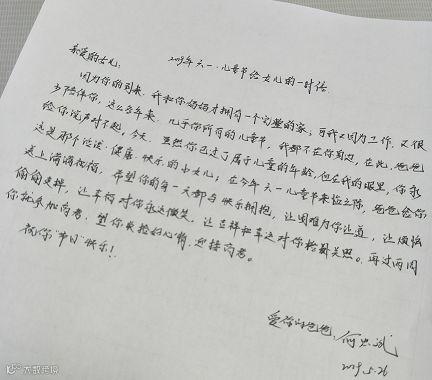 2019年六一儿童节给女儿的一封信
亲爱的女儿：
因为你的到来，我和你妈妈才拥有一个完整的家；可我又因为工作，又很
少陪伴你，这么多年来，几乎你所有的儿童节，我都不在你身边，在此，爸爸
给你说声对不起，今天，虽然你已过了属于儿童的年龄，但在我的眼里，你永
远是那个活泼、健康、快乐的小女儿；在今年六一儿童节来临之际，爸爸给你
送上满满祝福，希望你的每一天都与快乐拥抱，让困难为你让道，让烦恼
偷偷走掉，让幸福对你永远微笑，让吉祥和幸运对你格外关照。再过两周
你就要参加高考，望你
心情，迎接高考。
祝你“节日”快乐！
爱你的爸爸：何
2019.5.26
大数跨境